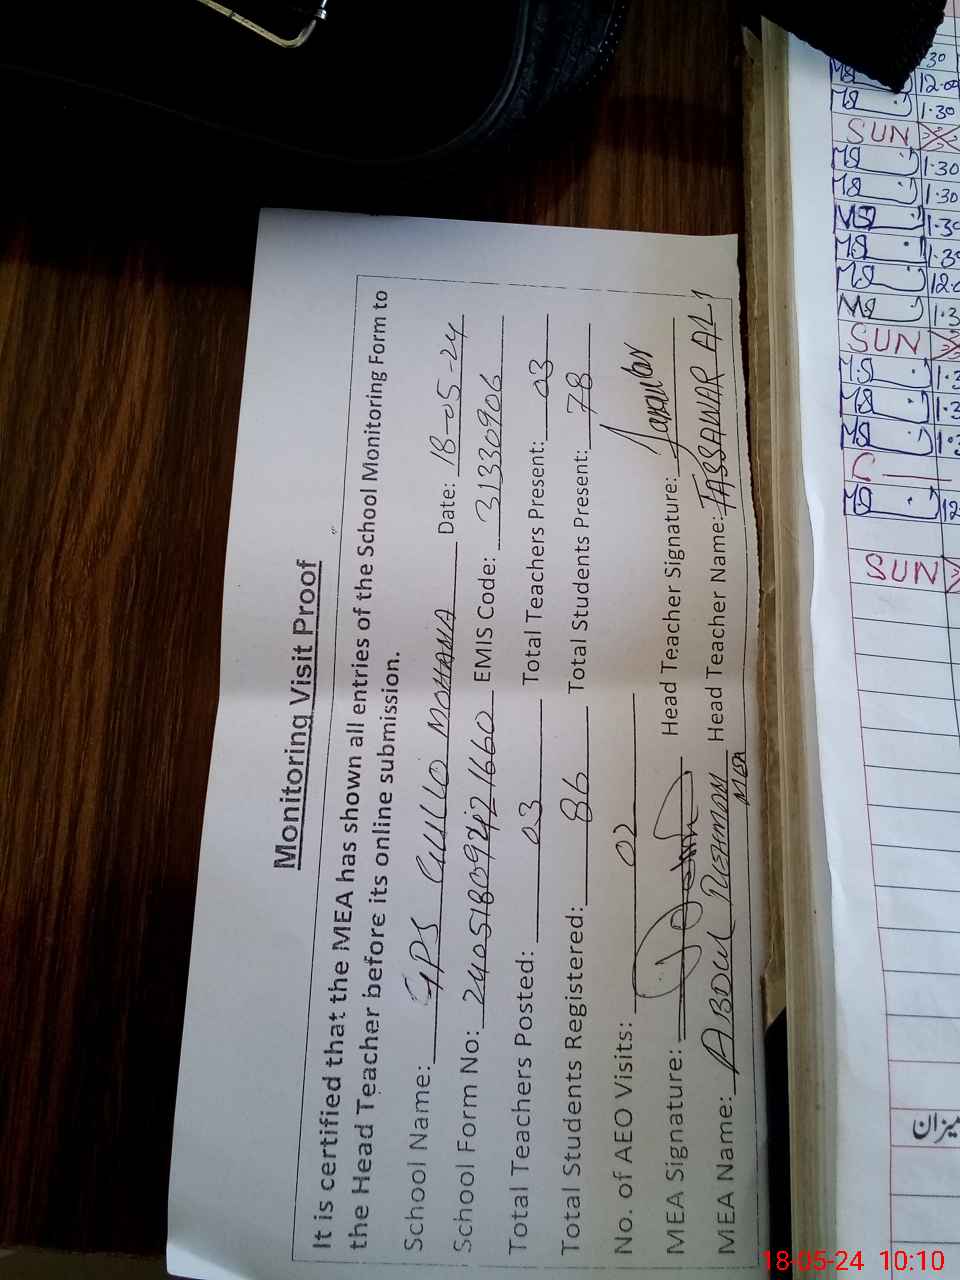 Monitoring Visit Proof
It is certified that the MEA has shown all entries of the School Monitoring Form to
the Head Teacher before its online submission.
School Name: GPS GULLO MOHANA Date: 18-05-24
School Form No: 2405180942421660 EMIS Code: 31330906
Total Teachers Posted: 03 Total Teachers Present: 03
Total Students Registered: 86 Total Students Present: 78
No. of AEO Visits: 02
MEA Signature: Head Teacher Signature:
MEA Name: ABDUL REHMAN Head Teacher Name: TASSAWAR ALI
MEA
12.00
1.30
SUN
1.30
1.30
SUN
C
SUN
میزان
18-05-24 10:10